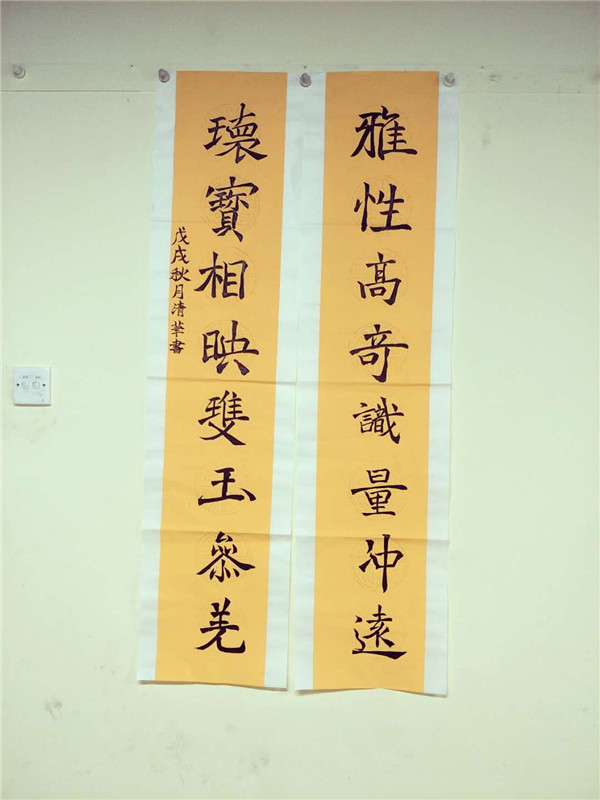 雅性髙竒識量冲遠
瓌寶相映雙玉參差
戊戌秋月清華書